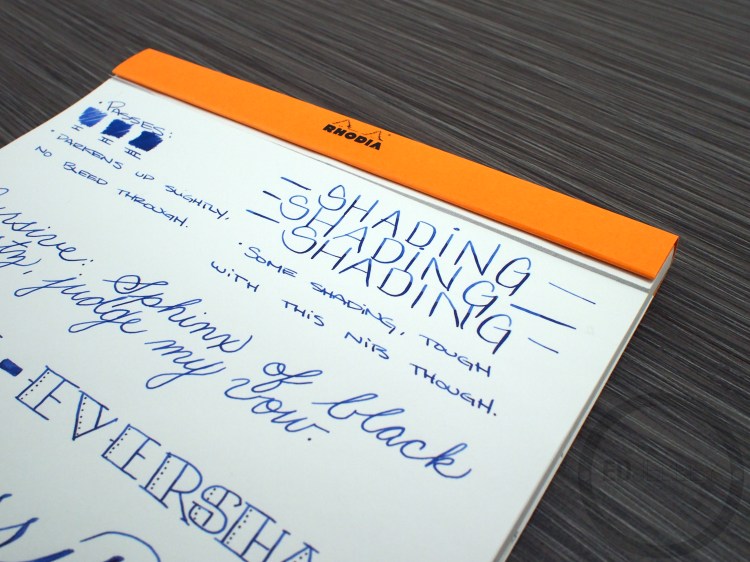 RHODIA
• PASSES:
I II III
• DARKENS UP SLIGHTLY,
NO BLEED THROUGH.
— SHADING —
— SHADING —
— SHADING —
• SOME SHADING, TOUGH
WITH THIS NIB THOUGH.
Sphinx of black
judge my vow.
- EVERSHA